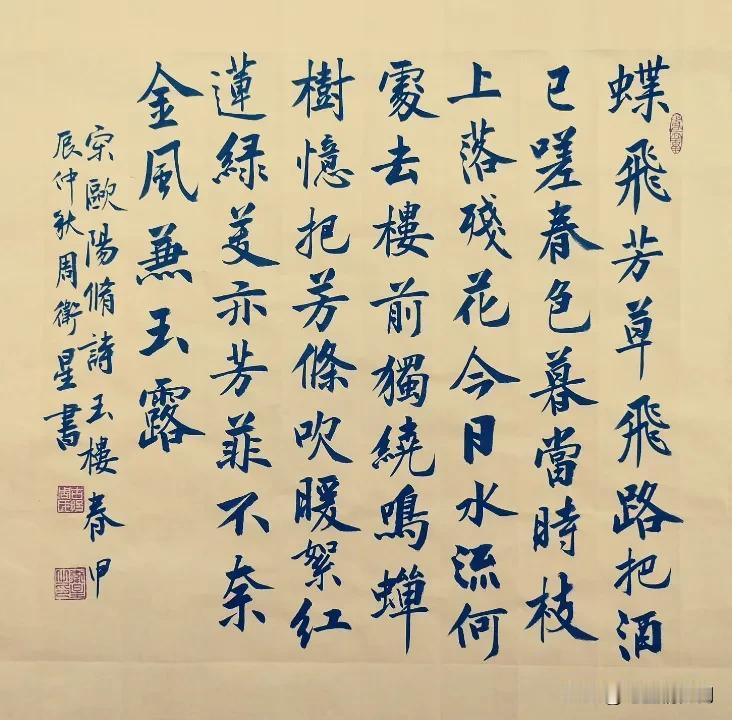 蝶飛芳草飛路把酒
已嗟春色暮當時枝
上落殘花今日水流何
處去樓前獨繞鳴蟬
樹憶把芳條吹暖絮紅
蓮緑芰亦芳菲不奈
金風兼玉露
宋歐陽脩詩玉樓春甲
辰仲秋周衛星書